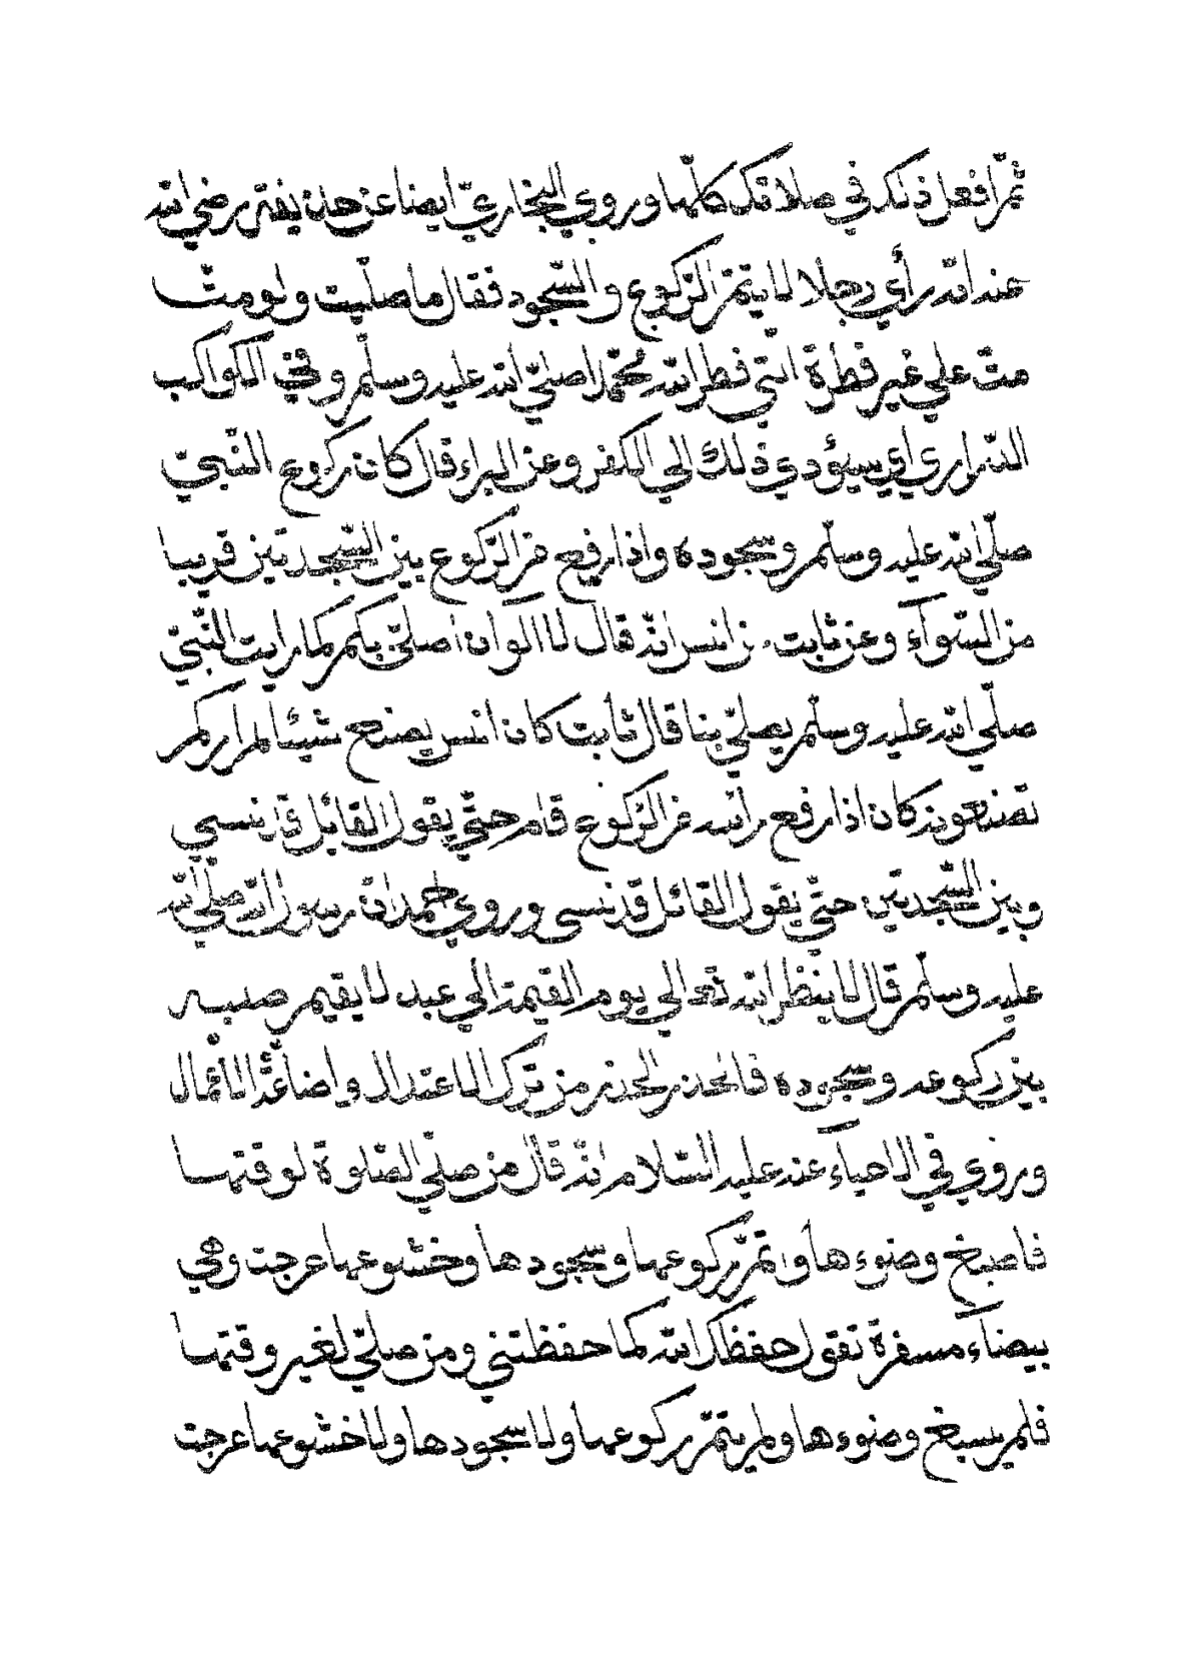 ثمّ افعل ذلك في صلاتك كلّها وروي البخاريّ ايضا عن حذيفة رضي الله
عنه انّه رأي رجلا لا يتمّ الرّكوع والسّجود فقال ما صلّيت ولو متّ
متّ علي غير فطرة الّتي فطر الله محمّدا صلّي الله عليه وسلّم وفي الكواكب
الدّراري اي سيؤدي ذلك الي الكفر وعن البراء قال كان ركوع النّبيّ
صلّي الله عليه وسلّم وسجوده واذا رفع من الرّكوع بين السّجدتين قريبا
من السّوآء وعن ثابت عن انس انّه قال لا الو ان اصلّي بكم كما رايت النّبيّ
صلّي الله عليه وسلّم يصلّي بنا قال ثابت كان انس يصنع شيئا لم اركم
تصنعونه كان اذا رفع رأسه من الرّكوع قام حتّي يقول القائل قد نسي
وبين السّجدتين حتّي يقول القائل قد نسي وروي احمد انّ رسول الله صلّي الله
عليه وسلّم قال لا ينظر الله تعالي يوم القيمة الي عبد لا يقيم صلبه
بين ركوعه وسجوده فالحذر الحذر من ترك الاعتدال واضاعة الاعمال
وروي في الاحياء عنه عليه السّلام انّه قال من صلّي الصّلوة لوقتها
فاصبغ وضوءها واتمّ ركوعها وسجودها وخشوعها عرجت وهي
بيضآء مسفرة تقول حفظك الله كما حفظتني ومن صلّي لغير وقتها
فلم يسبغ وضوءها ولم يتمّ ركوعها ولا سجودها ولا خشوعها عرجت